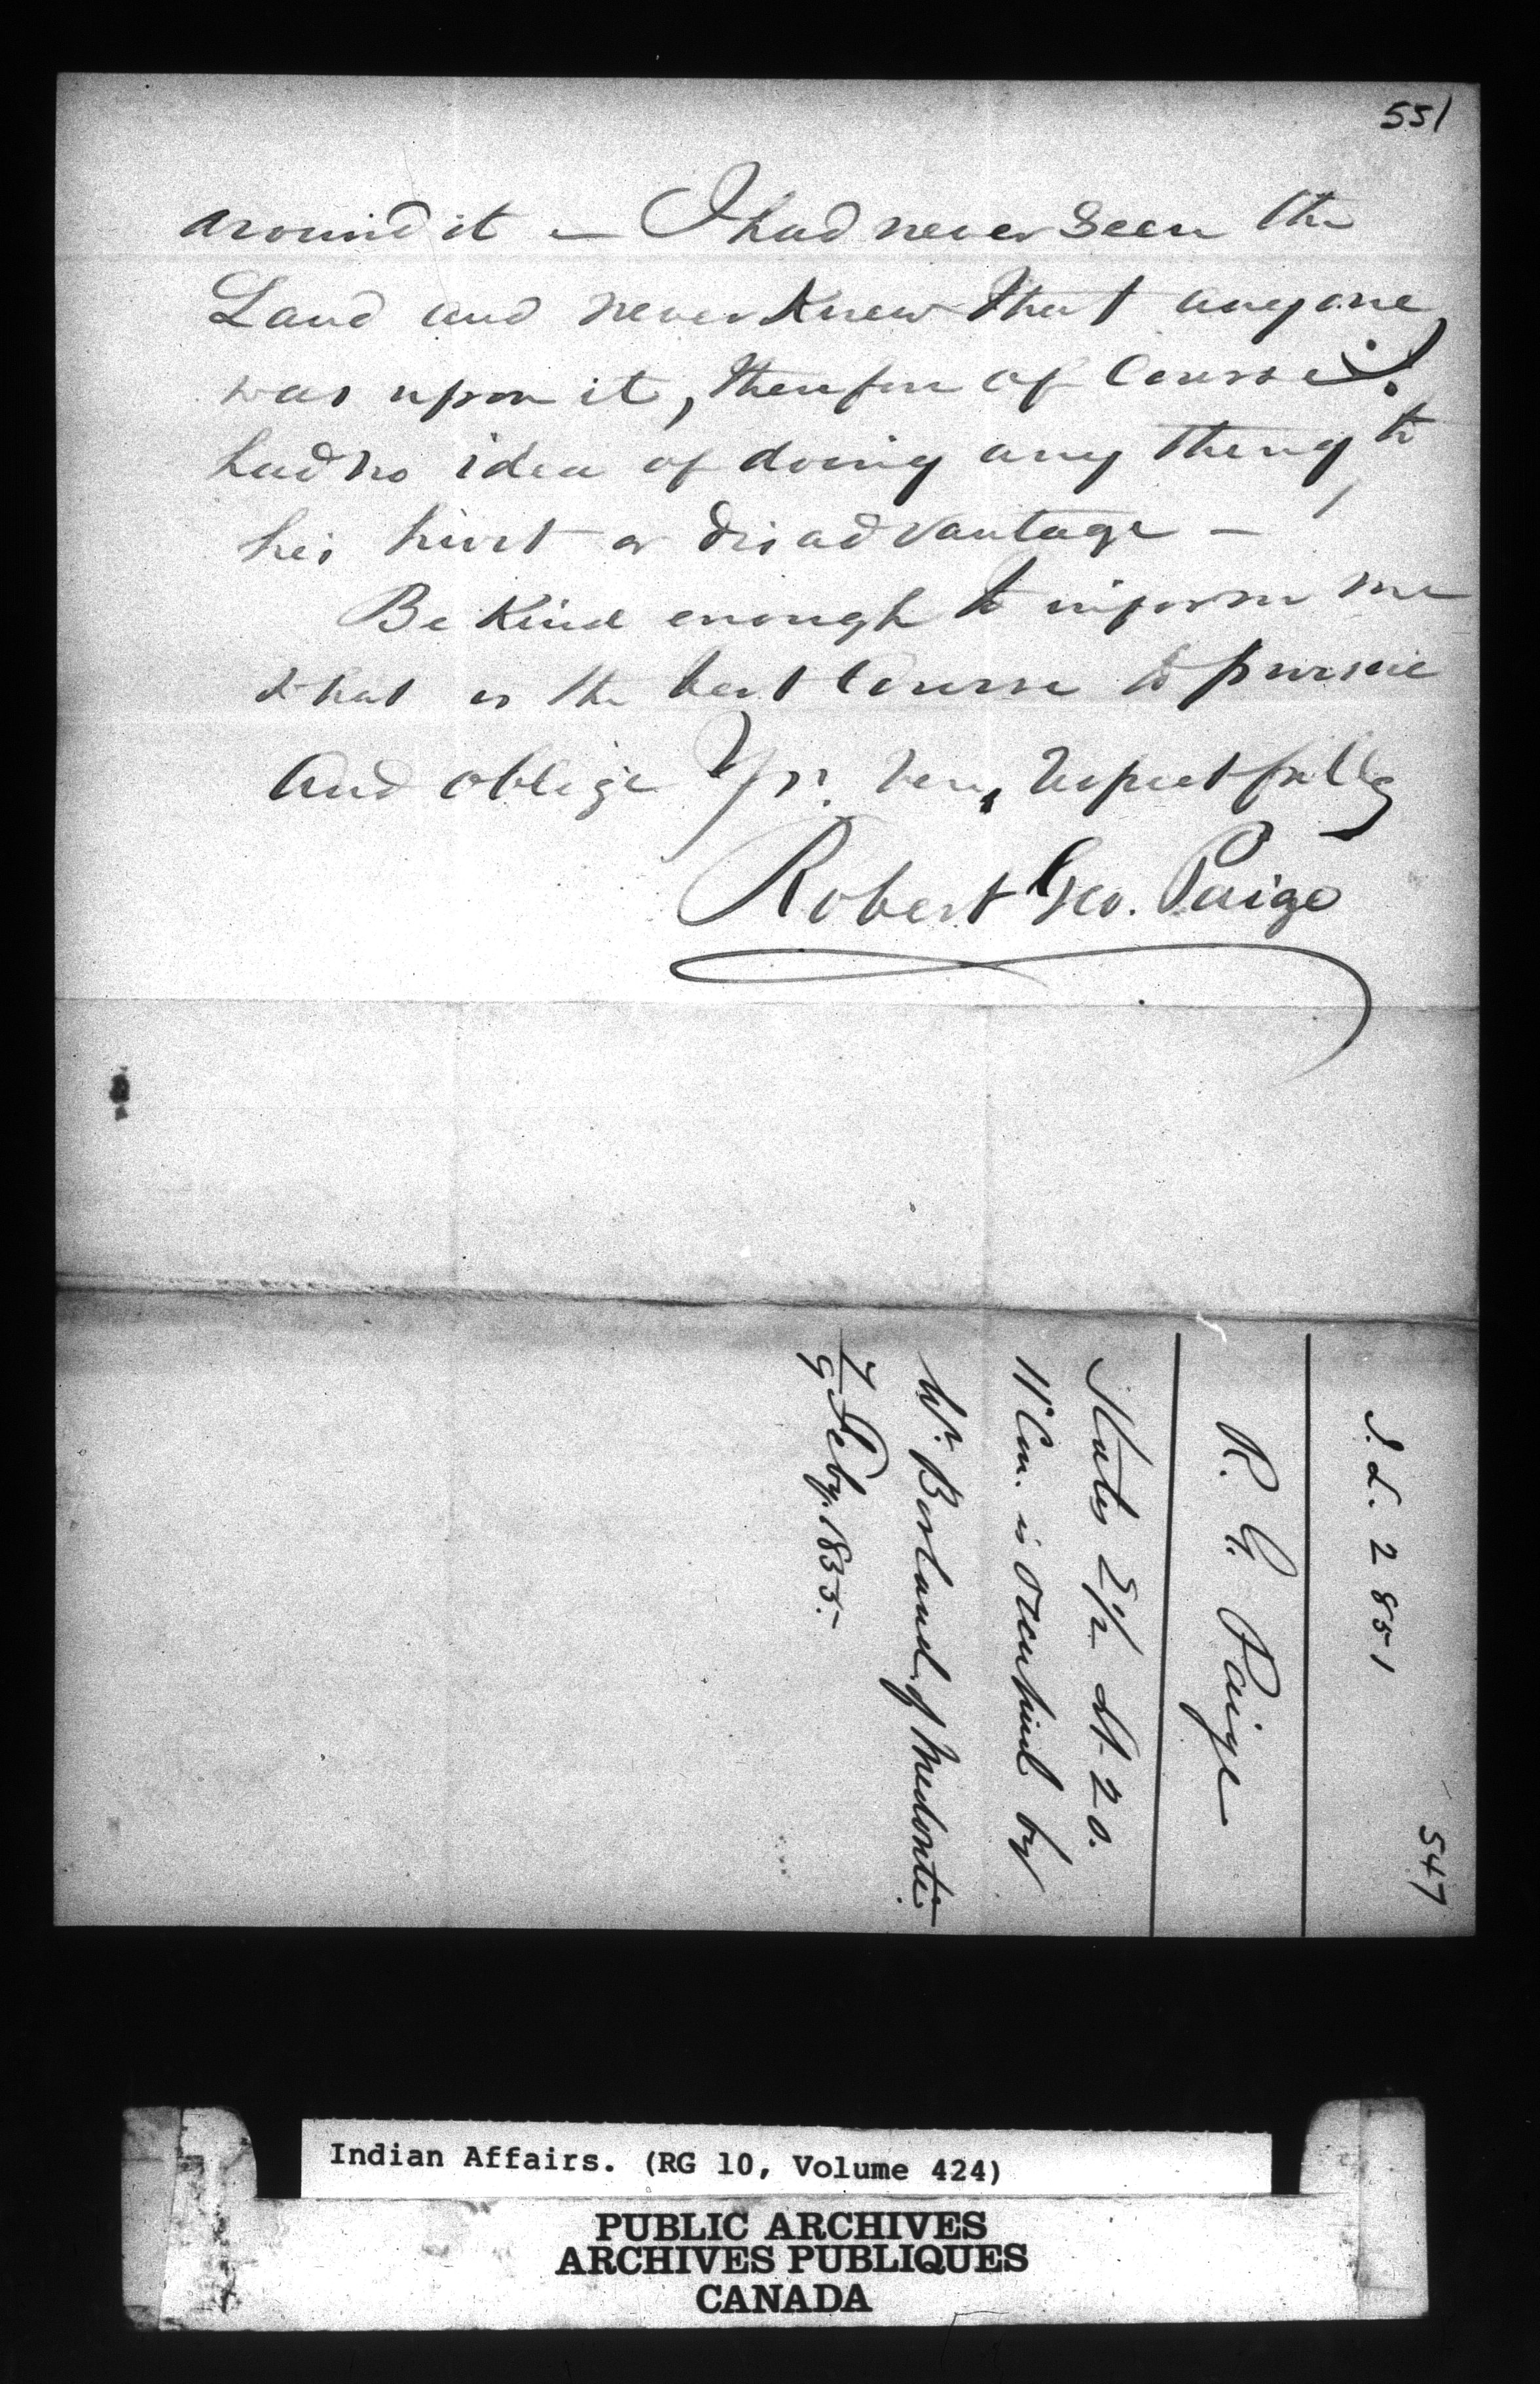 551
around it – I had never Seen the
Land and never Knew that anyone
was upon it, therefore of Course I
had no idea of doing any thing to
his hurt or disadvantage –
Be Kind enough to inform me
what is the best Course to pursue
And oblige Yrs. very respectfully
Robert Geo. Paige
547
I.L. 2851
R. G. Paige
States E½ Lt 20.
11 Con. is occupied by
Wm. Borland of Medonte
7/9 Feby. 1855.
Indian Affairs. (RG 10, Volume 424)
PUBLIC ARCHIVES
ARCHIVES PUBLIQUES
CANADA